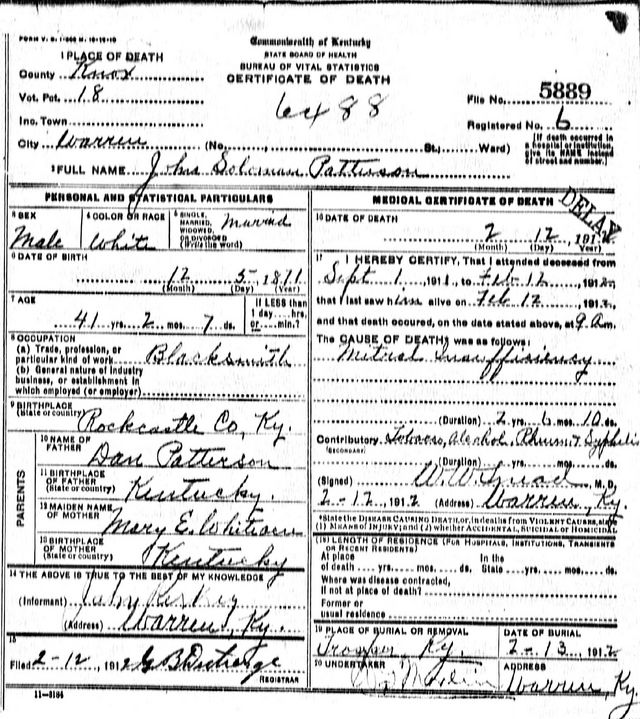 FORM V. S. 1-
Commonwealth of Kentucky
STATE BOARD OF HEALTH
BUREAU OF VITAL STATISTICS
CERTIFICATE OF DEATH
1 PLACE OF DEATH
County Knox
Vot. Pct. 18
Inc. Town
City Warren (No. St.; Ward)
6488
File No. 5889
Registered No. 6
[If death occurred in a hospital or institution, give its NAME instead of street and number.]
2 FULL NAME John Soloman Patterson
PERSONAL AND STATISTICAL PARTICULARS
3 SEX Male
4 COLOR OR RACE White
5 SINGLE, MARRIED, WIDOWED, OR DIVORCED (Write the word) Married
6 DATE OF BIRTH
12 5 1871
(Month) (Day) (Year)
7 AGE
41 yrs. 2 mos. 7 ds.
If LESS than 1 day .... hrs. or .... min.?
8 OCCUPATION
(a) Trade, profession, or particular kind of work Blacksmith
(b) General nature of industry business, or establishment in which employed (or employer)
9 BIRTHPLACE
(State or country) Rockcastle Co, Ky.
PARENTS
10 NAME OF FATHER Dan Patterson
11 BIRTHPLACE OF FATHER (State or country) Kentucky.
12 MAIDEN NAME OF MOTHER Mary E.
13 BIRTHPLACE OF MOTHER (State or country) Kentucky
14 THE ABOVE IS TRUE TO THE BEST OF MY KNOWLEDGE
(Informant)
(Address) Warren, Ky.
15
Filed 2-12, 1912 G B
REGISTRAR
11-3184
MEDICAL CERTIFICATE OF DEATH
DELAY
16 DATE OF DEATH
2 12, 1912
(Month) (Day) (Year)
17 I HEREBY CERTIFY, That I attended deceased from
Sept 1 1911, to Feb 12, 1912,
that I last saw him alive on Feb 12, 1912,
and that death occurred, on the date stated above, at 9 am.
The CAUSE OF DEATH was as follows:
Mitral Insufficiency
(Duration) 2 yrs. 6 mos. 10 ds.
Contributory Tobacco, Alcohol, Syphilis
(SECONDARY)
(Duration) yrs. mos. ds.
(Signed) W. W. M. D.
2-12, 1912 (Address) Warren, Ky.
*State the DISEASE CAUSING DEATH, or, in deaths from VIOLENT CAUSES, state (1) MEANS OF INJURY; and (2) whether ACCIDENTAL, SUICIDAL or HOMICIDAL.
(18) LENGTH OF RESIDENCE (FOR HOSPITALS, INSTITUTIONS, TRANSIENTS OR RECENT RESIDENTS)
At place of death .... yrs. .... mos. .... ds.
In the State .... yrs. .... mos. .... ds.
Where was disease contracted,
If not at place of death?
Former or usual residence
19 PLACE OF BURIAL OR REMOVAL
Trosper, Ky.
DATE OF BURIAL
2-13, 1912
20 UNDERTAKER
ADDRESS
Warren, Ky.